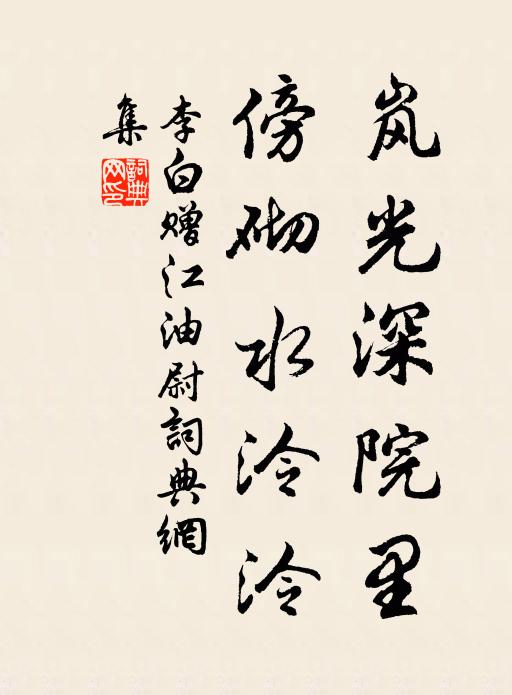 岚光深院里
傍砌水泠泠
李白赠江油尉詞典網
集
詞典网印